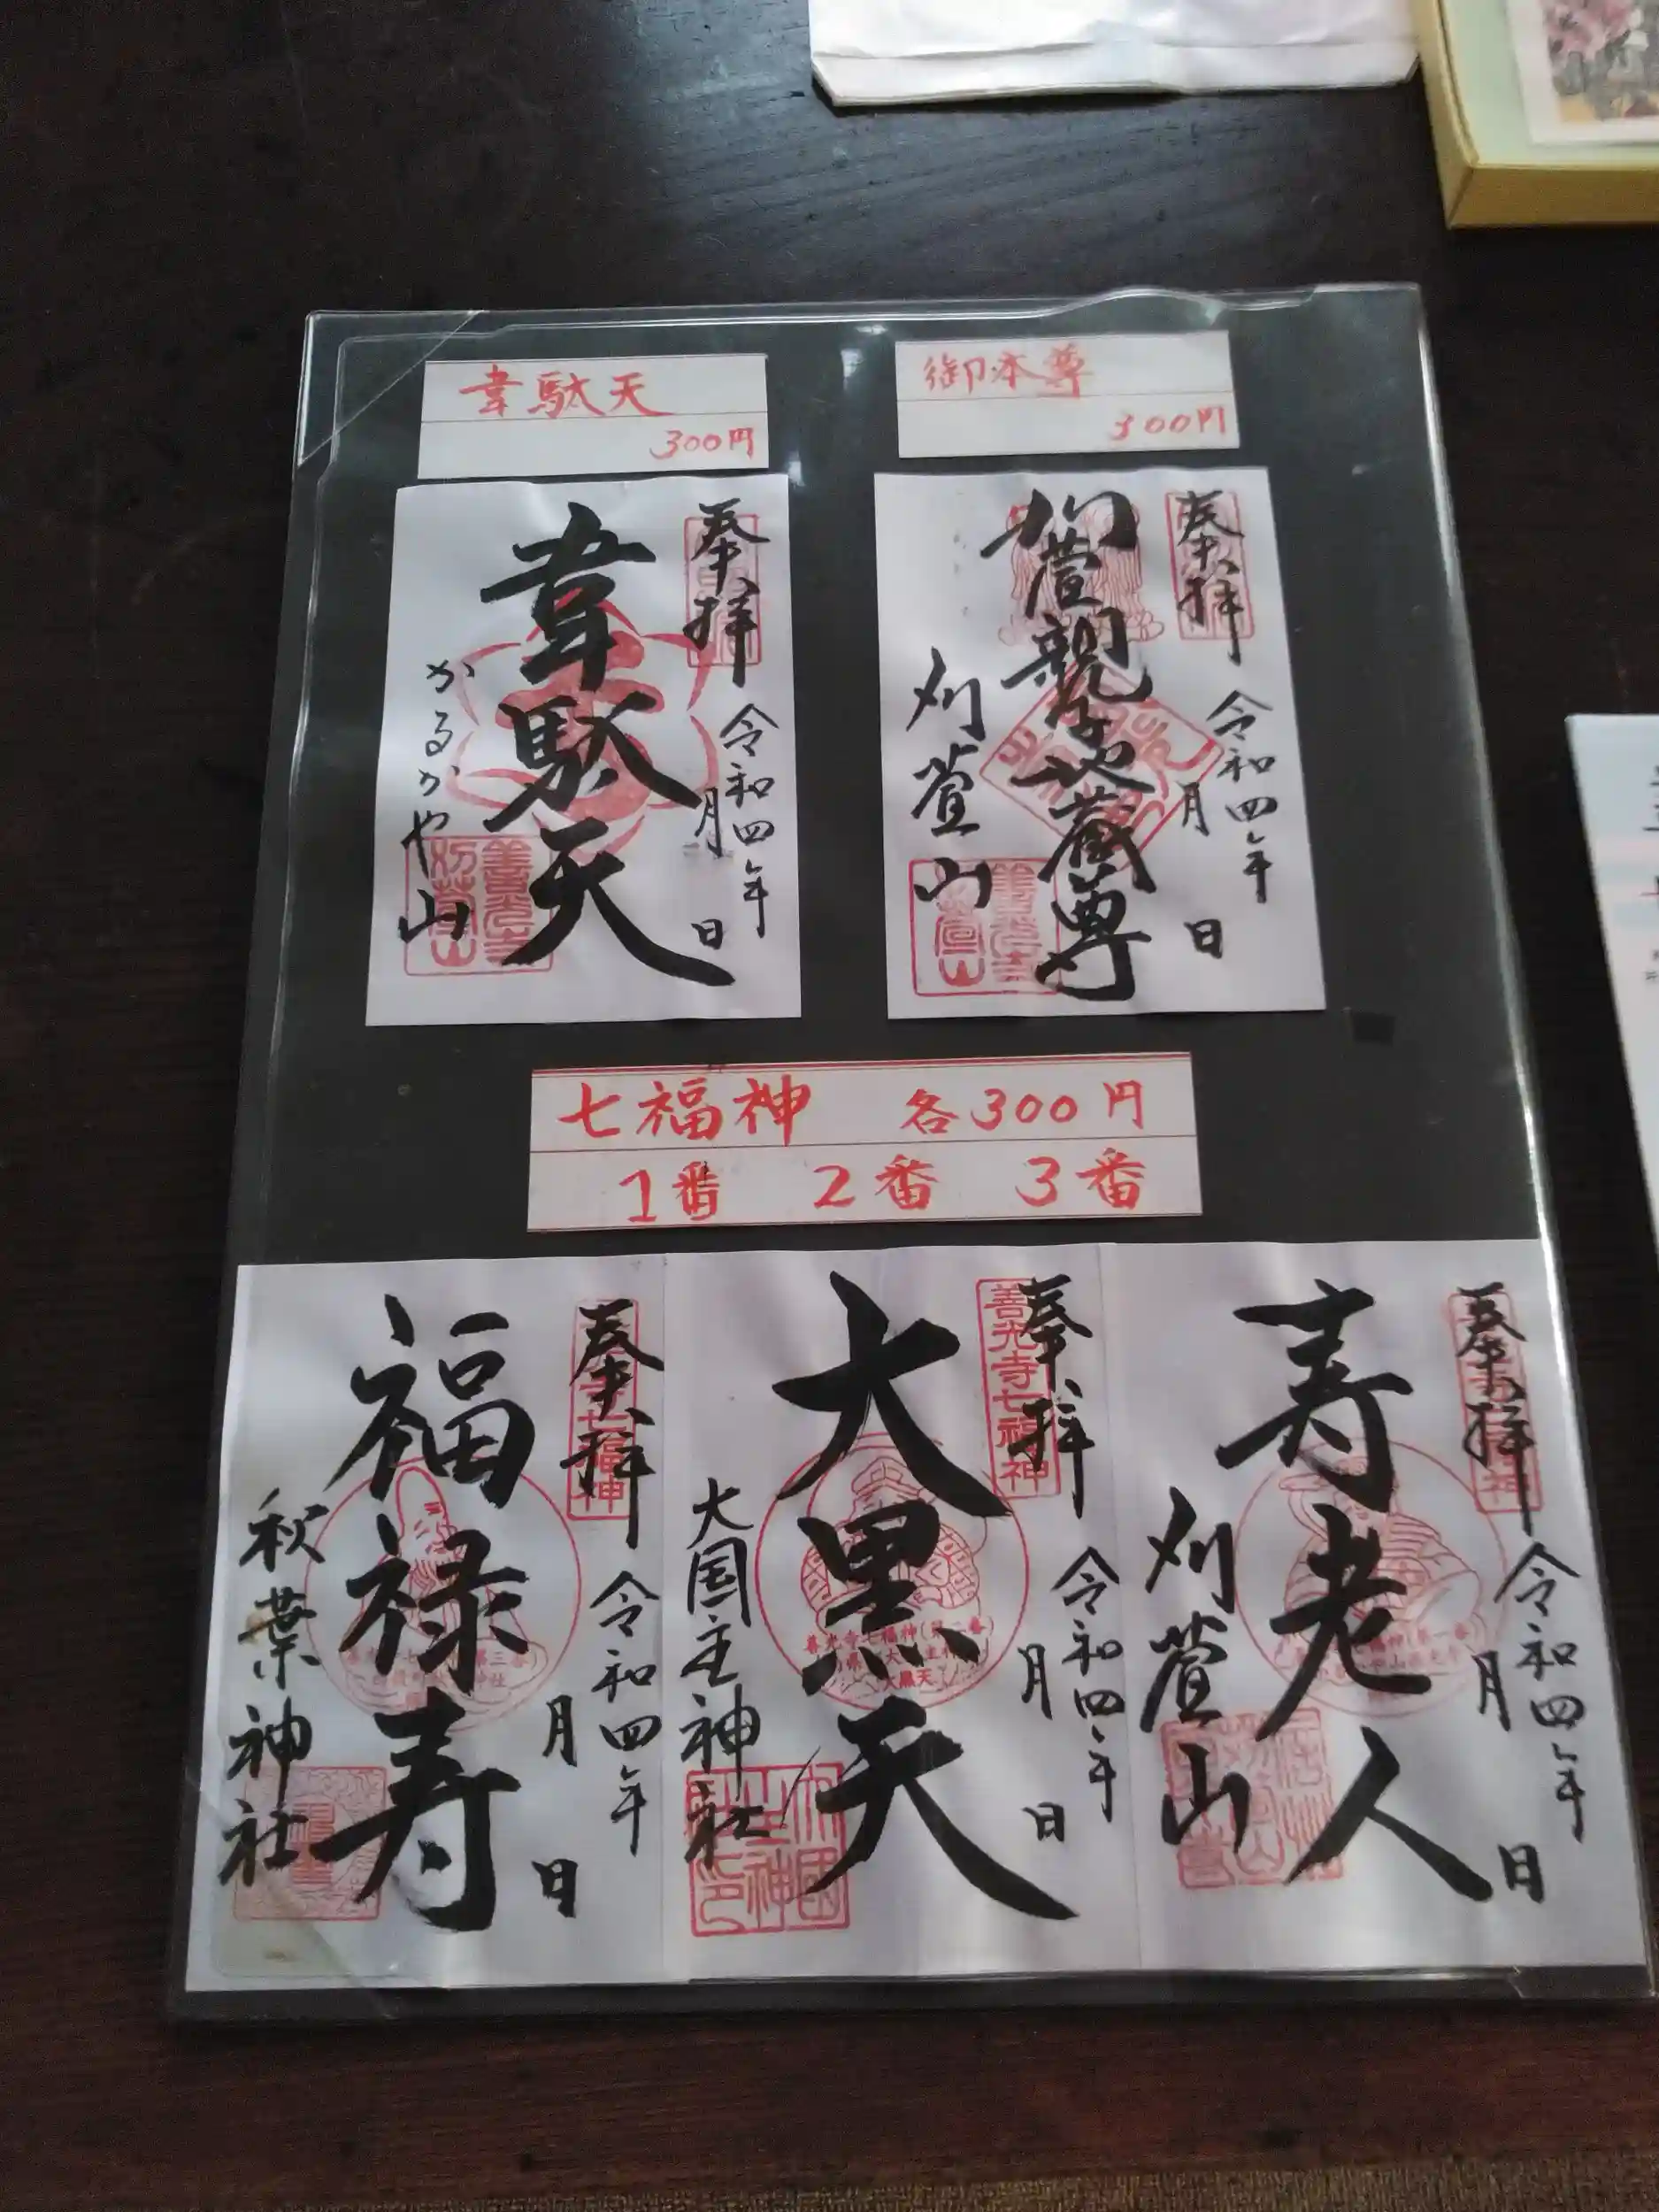 韋駄天
300円
御本尊
300円
奉拝
令和四年
月
日
韋駄天
かるかや山
奉拝
令和四年
月
日
刈萱親子地蔵尊
刈萱山
七福神 各300円
1番 2番 3番
奉拝
令和四年
月
日
福禄寿
秋葉神社
善光寺七福神
奉拝
令和四年
月
日
大黒天
大国主神社
大黒天
奉拝
令和四年
月
日
寿老人
刈萱山